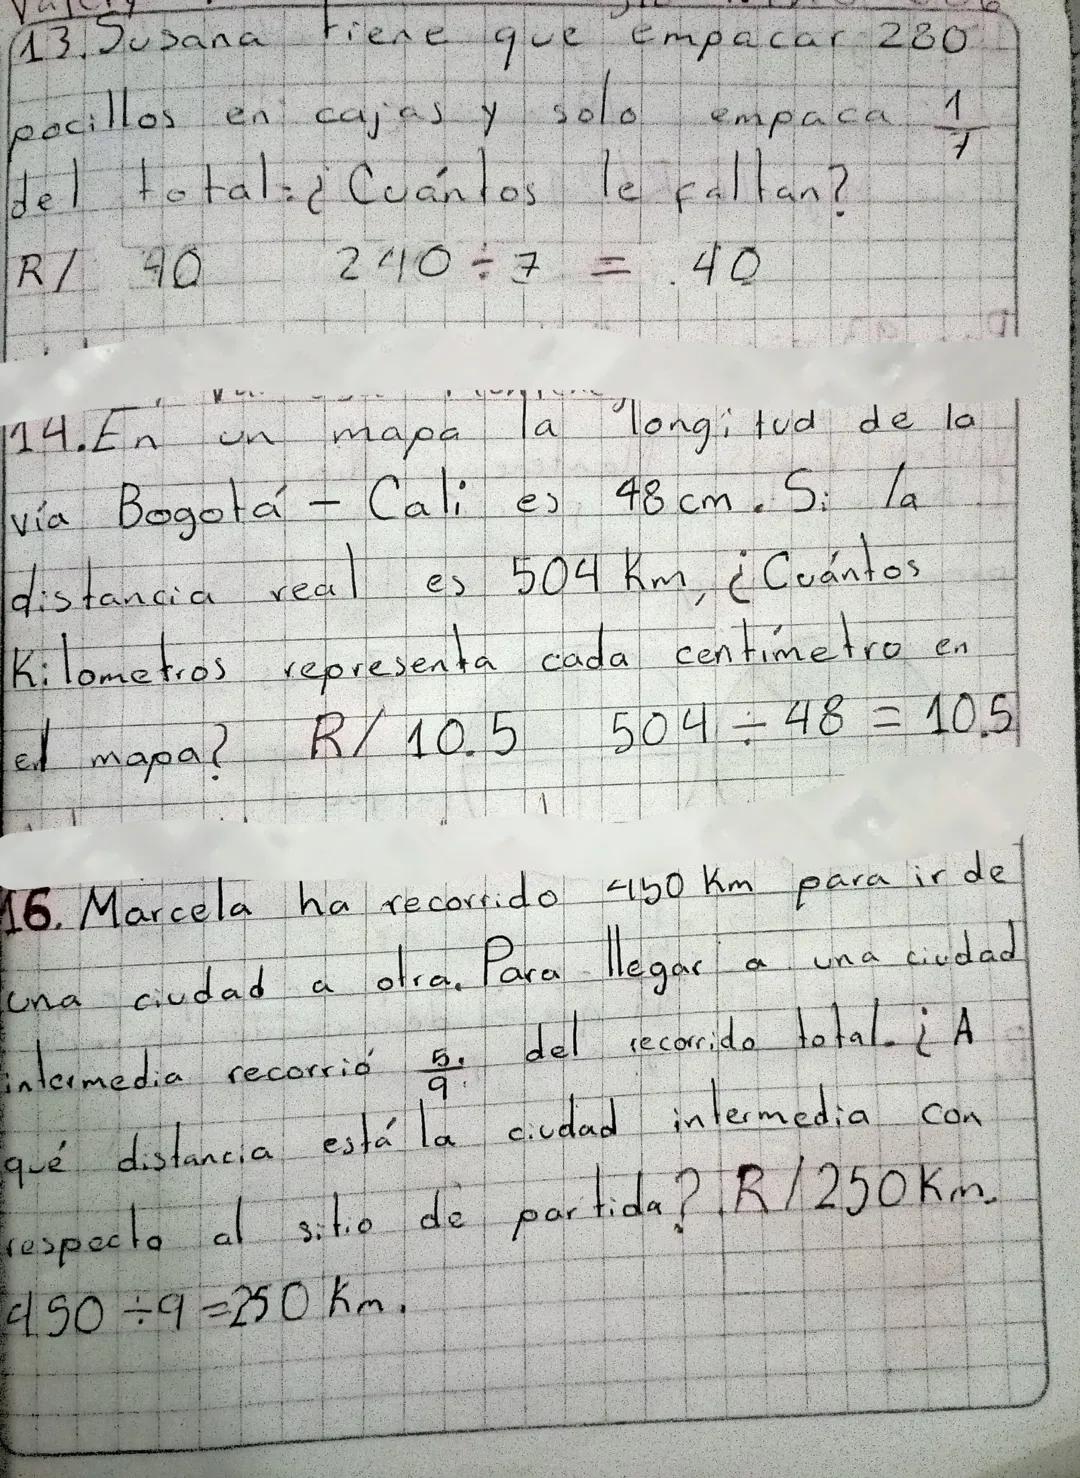 13. Susana tiene que empacar 280
pocillos en cajas y solo empaca 1/7
del total. ¿Cuántos le faltan?
R/ 40 240 ÷ 7 = 40
14. En un mapa la longitud de la
vía Bogotá - Cali es 48 cm. Si la
distancia real es 504 Km, ¿Cuántos
Kilometros representa cada centímetro en
el mapa? R/ 10.5 504 ÷ 48 = 10.5
16. Marcela ha recorrido 450 Km para ir de
una ciudad a otra. Para llegar a una ciudad
intermedia recorrió 5/9 del recorrido total. ¿A
qué distancia está la ciudad intermedia con
respecto al sitio de partida? R/ 250 Km.
450 ÷ 9 = 250 Km.